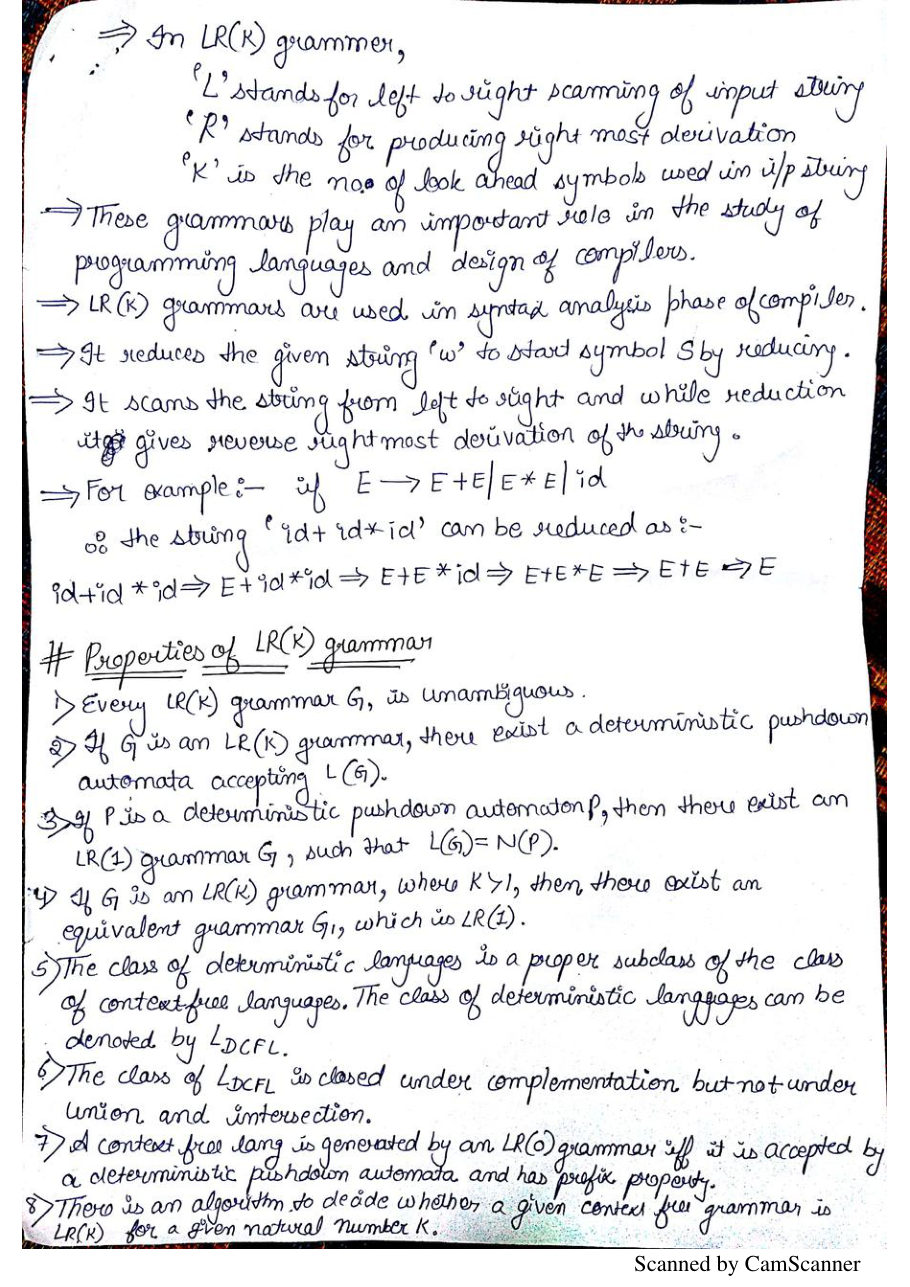 ⇒ In LR(K) grammer,
'L' stands for left to right scanning of input string
'R' stands for producing right most derivation
'K' is the no. of look ahead symbols used in i/p string
⇒ These grammars play an important role in the study of
programming languages and design of compilers.
⇒ LR(K) grammars are used in syntax analysis phase of compiler.
⇒ It reduces the given string 'w' to start symbol S by reducing.
⇒ It scans the string from left to right and while reduction
it gives reverse right most derivation of the string.
⇒ For example :- if E → E+E | E * E | id
∴ the string 'id+id*id' can be reduced as :-
id+id *id ⇒ E+id*id ⇒ E+E *id ⇒ E+E*E ⇒ E+E ⇒ E
# Properties of LR(K) grammar
1) Every LR(K) grammar G, is unambiguous.
2) If G is an LR(K) grammar, there exist a deterministic pushdown
automata accepting L(G).
3) If P is a deterministic pushdown automaton P, then there exist an
LR(1) grammar G, such that L(G) = N(P).
4) If G is an LR(K) grammar, where K>1, then there exist an
equivalent grammar G1, which is LR(1).
5) The class of deterministic languages is a proper subclass of the class
of context free languages. The class of deterministic langgages can be
denoted by LDCFL.
6) The class of LDCFL is closed under complementation but not under
union and intersection.
7) A context free lang is generated by an LR(0) grammar iff it is accepted by
a deterministic pushdown automata and has prefix property.
8) There is an algorithm to decide whether a given context free grammar is
LR(K) for a given natural number K.
Scanned by CamScanner